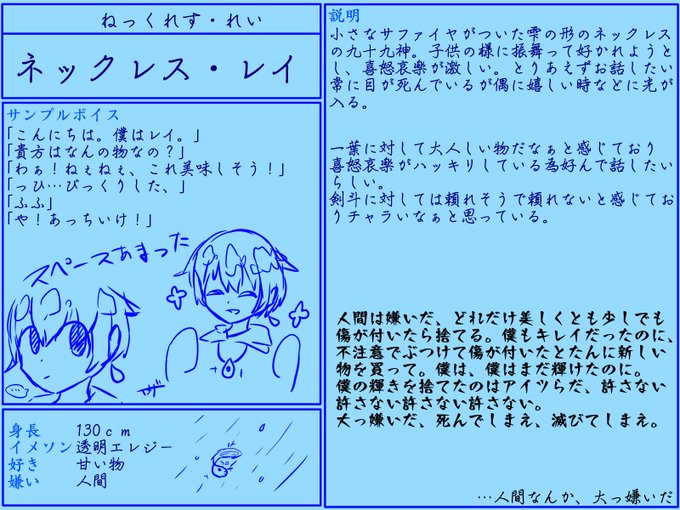 ねっくれす・れい
ネックレス・レイ
サンプルボイス
「こんにちは。僕はレイ。」
「貴方はなんの物なの？」
「わぁ！ねぇねぇ、これ美味しそう！」
「っひ…びっくりした、」
「ふふ」
「や！あっちいけ！」
スペースあまった
身長 130ｃｍ
イメソン 透明エレジー
好き 甘い物
嫌い 人間
説明
小さなサファイヤがついた雫の形のネックレス
の九十九神。子供の様に振舞って好かれようと
し、喜怒哀楽が激しい。とりあえずお話したい
常に目が死んでいるが偶に嬉しい時などに光が
入る。
一葉に対して大人しい物だなぁと感じており
喜怒哀楽がハッキリしている為好んで話したい
らしい。
剣斗に対しては頼れそうで頼れないと感じてお
りチャラいなぁと思っている。
人間は嫌いだ、どれだけ美しくとも少しでも
傷が付いたら捨てる。僕もキレイだったのに、
不注意でぶつけて傷が付いたとたんに新しい
物を買って。僕は、僕はまだ輝けたのに。
僕の輝きを捨てたのはアイツらだ、許さない
許さない許さない許さない。
大っ嫌いだ、死んでしまえ、滅びてしまえ。
…人間なんか、大っ嫌いだ